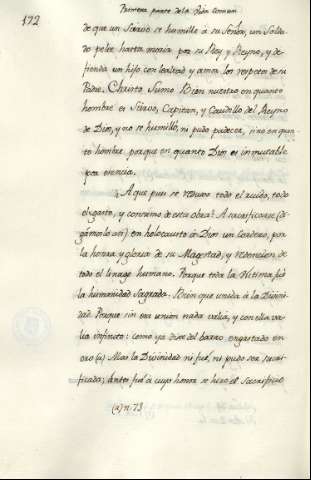 172
Primera parte de la Obra Comun
de que un Siervo se humille a su Señor, un Solda-
do pelee hasta morir por su Rey y Reyno, y de-
fienda un hijo con lealtad y amor los respetos de su
Padre. Christo Sumo Bien nuestro en quanto
hombre es Siervo, Capitan, y Caudillo del Reyno
de Dios, y no se humilló, ni pudo padecer, sino en quan-
to hombre porque en quanto Dios es inmutable
por esencia.
A que pues se reduxo todo el ruido, todo
el gasto, y consumo de esta obra? A sacrificarse (di-
gamoslo asi) en holocausto à Dios un Cordero, por
la honra y gloria de su Magestad, y redencion de
todo el linage humano. Porque toda la Victima fué
la humanidad Sagrada. Bien que unida à la Divini-
dad. Porque sin esa union nada valía, y con ella va-
lia infinito: como ya dixe del barro engastado en
oro (a) Mas la Divinidad ni fué, ni pudo ser sacri-
ficada; antes fué à cuyo honor se hizo el Sacrificio
(a) n. 73